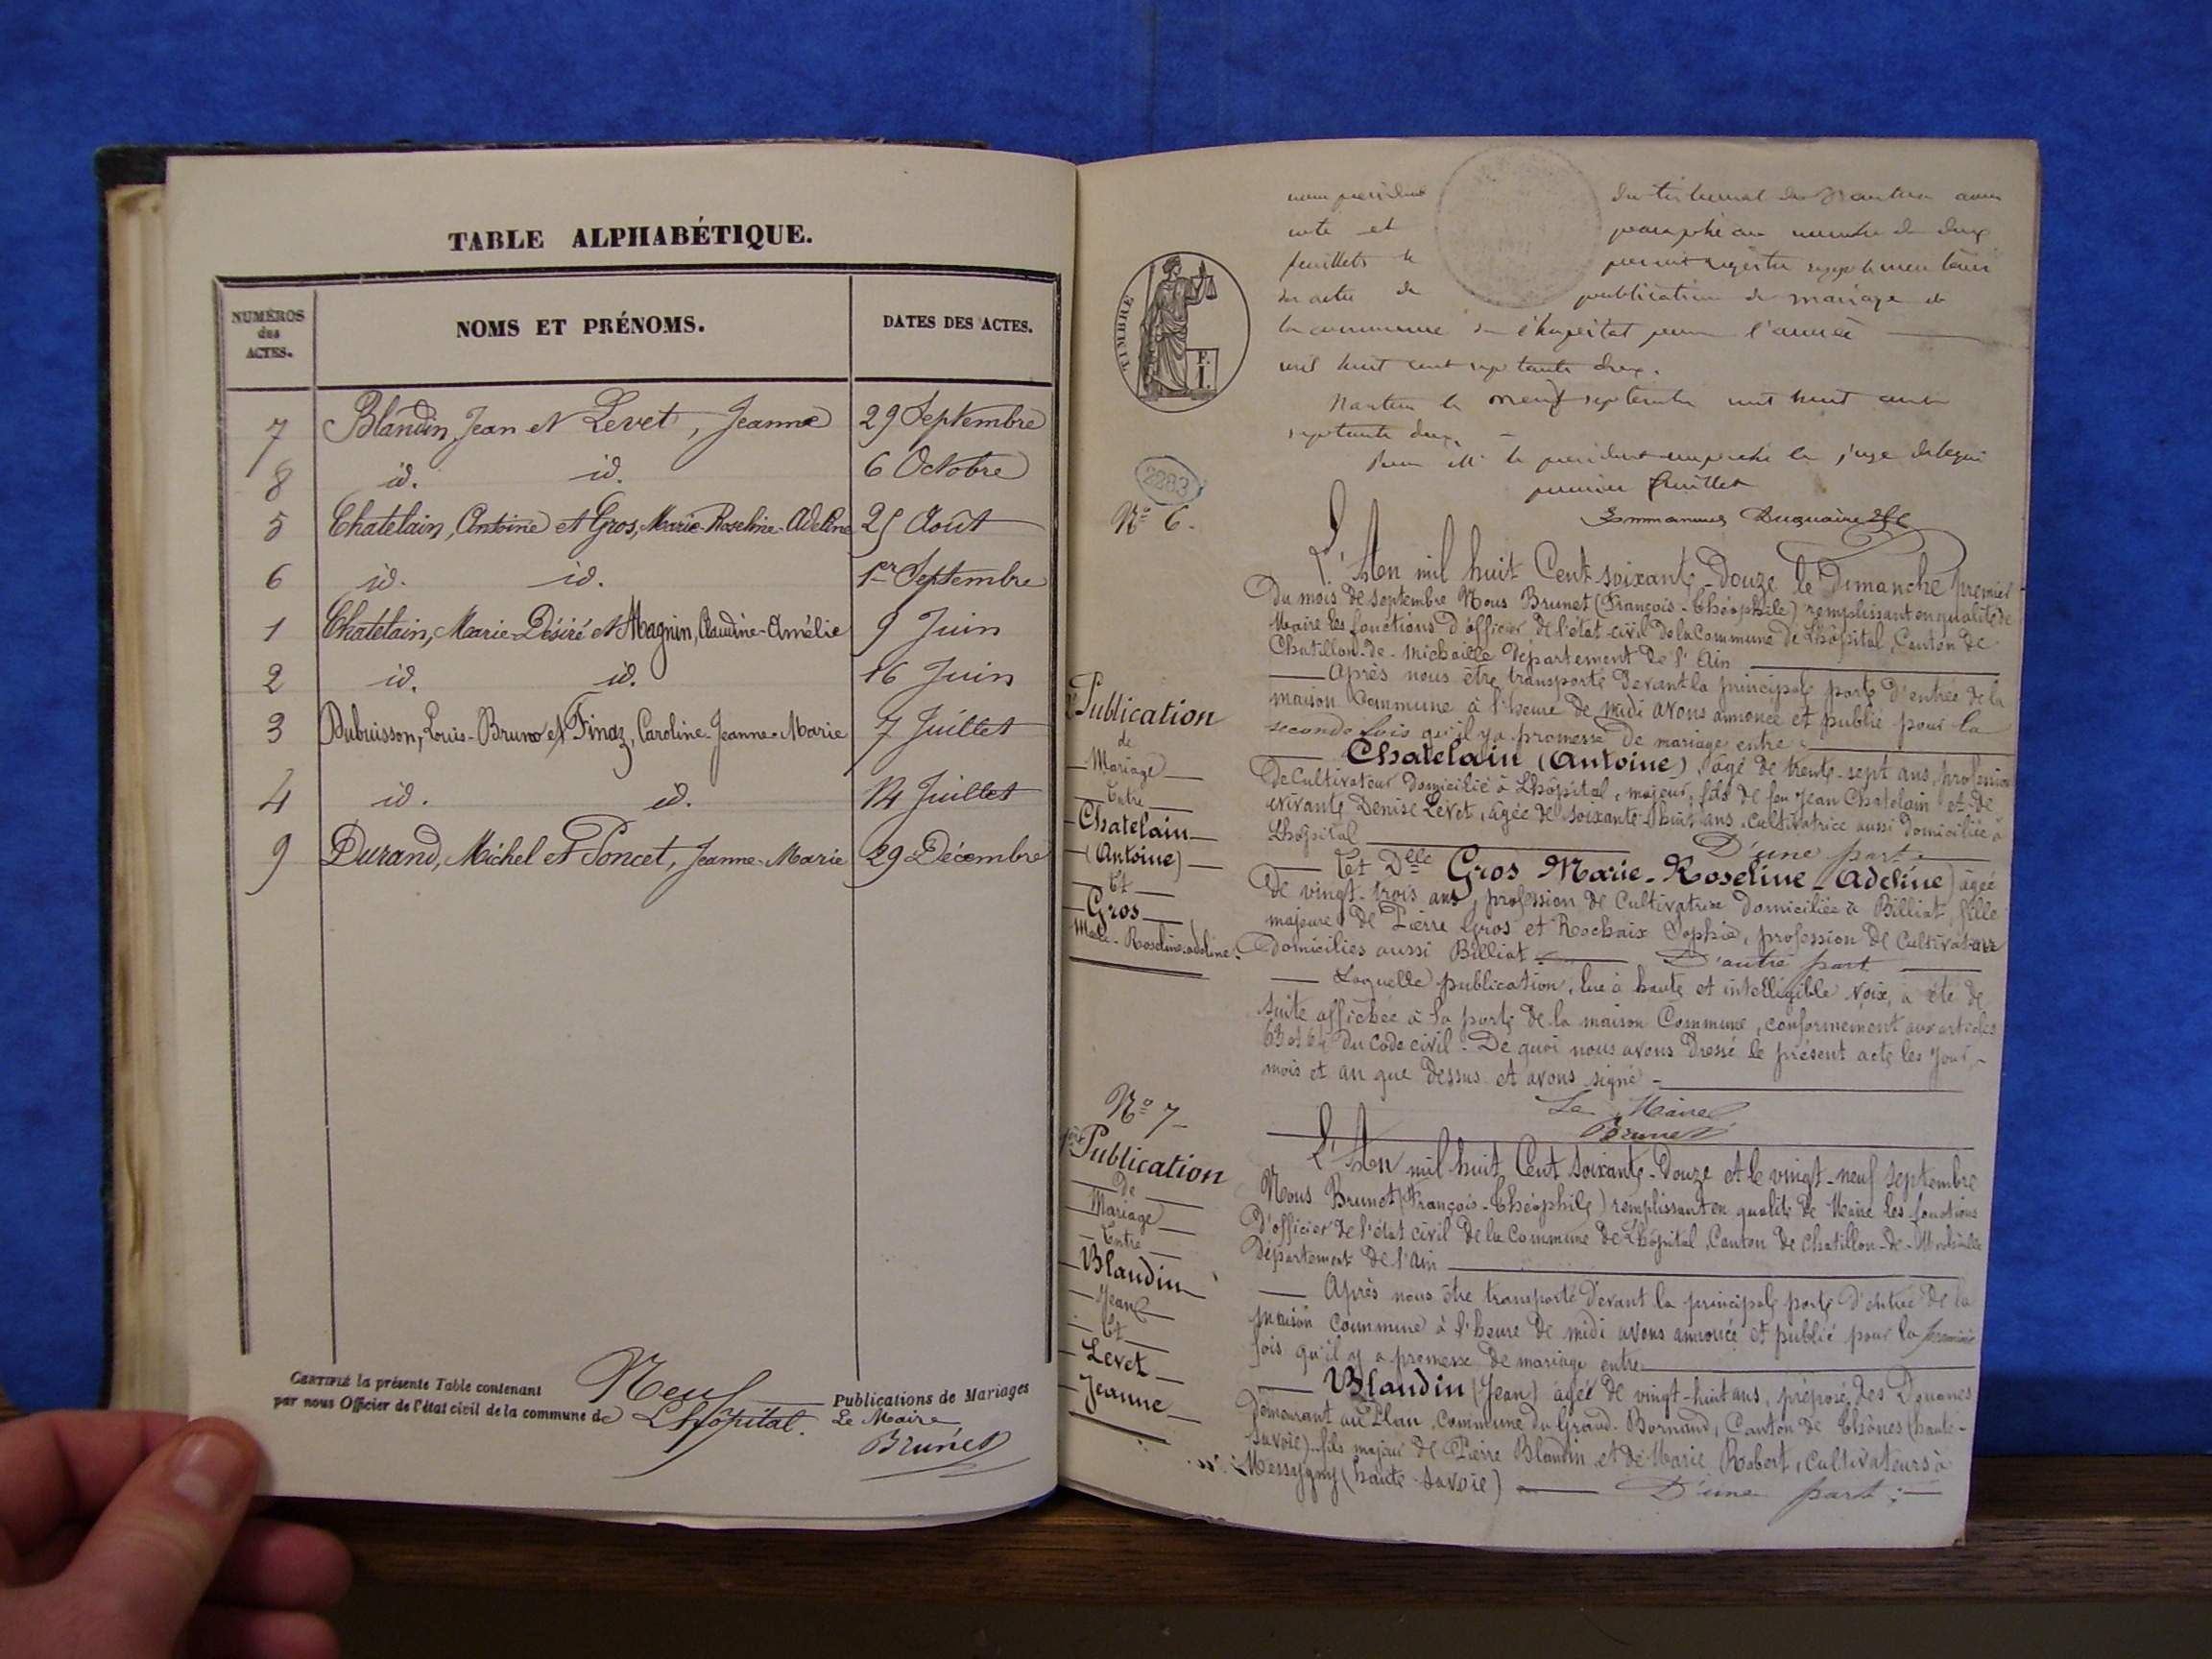 TABLE ALPHABÉTIQUE.
NUMÉROS des ACTES.
NOMS ET PRÉNOMS.
DATES DES ACTES.
7 Blandin Jean et Levet, Jeanne 29 Septembre
8 id. id. 6 Octobre
5 Chatelain, Antoine et Gros, Marie-Roseline-Adeline 25 Août
6 id. id. 1er Septembre
1 Chatelain, Marie-Désiré et Magnin, Claudine-Amélie 9 Juin
2 id. id. 16 Juin
3 Dubuisson, Louis-Bruno et Finaz, Caroline-Jeanne-Marie 7 Juillet
4 id. id. 14 Juillet
9 Durand, Michel et Poncet, Jeanne-Marie 29 Décembre
CERTIFIÉ la présente Table contenant Neuf Publications de Mariages
par nous Officier de l'état civil de la commune de Lhôpital. Le Maire
Brunet
TIMBRE
F.
I.
du tribunal de Nantua
cote et paraphé au nombre de deux
feuillets le
des actes de publication de mariage de
la commune de l'hopital pour l'année
mil huit cent septante deux.
Nantua le neuf septembre mil huit cent
septante deux.
Pour Mr le président empeché le juge delegué
premier feuillet
2283
No 6.
2e Publication
de
Mariage
Entre
Chatelain
(Antoine)
Et
Gros
Marie-Roseline-adeline.
L'An mil huit Cent soixante-Douze le Dimanche premier
Du mois de septembre Nous Brunet (François-Théophile) remplissant en qualité de
Maire les fonctions d'officier de l'état-civil de la Commune de Lhôpital, Canton de
Chatillon-de-Michaille Département de l'Ain
Après nous être transporté Devant la principale porte D'entrée de la
maison Commune à l'heure de midi avons annoncé et publié pour la
seconde fois qu'il y a promesse De mariage entre
Chatelain (Antoine), âgé de trente-sept ans, profession
de Cultivateur Domicilié à Lhôpital, majeur, fils de feu Jean Chatelain et de
vivante Denise Levet, âgée de soixante-huit ans, Cultivatrice aussi Domiciliée à
Lhôpital D'une part.
Et Dlle Gros Marie-Roseline-Adeline) âgée
De vingt-trois ans, profession de Cultivatrice Domiciliée à Billiat, fille
majeure de Pierre Gros et Rochaix Sophie, profession de Cultivateurs
Domiciliés aussi Billiat D'autre part
Laquelle publication, lue à haute et intelligible voix, a été de
suite affichée à la porte de la maison Commune, conformément aux articles
63 et 64 du Code civil. De quoi nous avons dressé le présent acte les jour,
mois et an que Dessus et avons signé
Le Maire
Brunet
No 7
1ère Publication
De
Mariage
Entre
Blandin
Jean
Et
Levet
Jeanne
L'An mil huit Cent Soixante-Douze et le vingt-neuf septembre
Nous Brunet (François-Théophile) remplissant en qualité de Maire les fonctions
D'officier de l'état civil de la Commune de Lhôpital, Canton de Chatillon-de-Michaille
Département de l'Ain
Après nous être transporté Devant la principale porte D'entrée de la
maison Commune à l'heure de midi avons annoncé et publié pour la première
fois qu'il y a promesse de mariage entre
Blandin (Jean) âgé de vingt-huit ans, préposé des Douanes
Demeurant au Plan, Commune du Grand-Bornand, Canton de Thônes (haute-
Savoie) fils majeur de Pierre Blandin et de Marie Robert, Cultivateurs à
(haute-Savoie) D'une part;